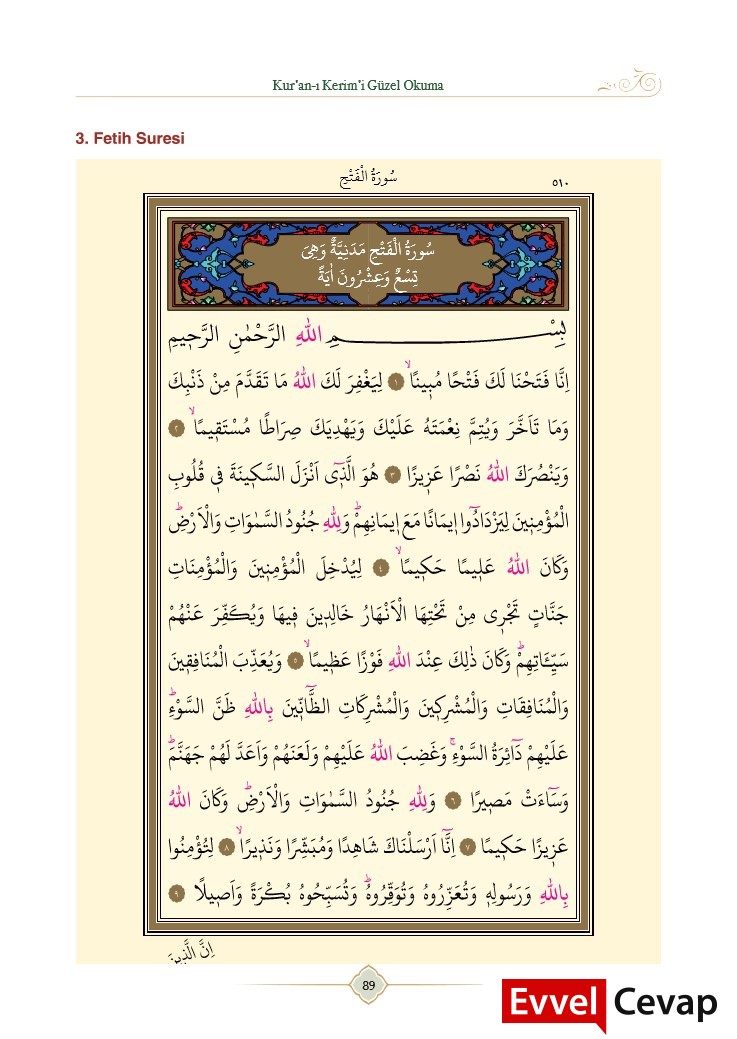 Kur'an-ı Kerim'i Güzel Okuma
3. Fetih Suresi
سُورَةُ الْفَتْحِ
٥١٠
سُورَةُ الْفَتْحِ مَدَنِيَّةٌ وَهِىَ
تِسْعٌ وَعِشْرُونَ اٰيَةً
بِسْمِ اللّٰهِ الرَّحْمٰنِ الرَّحٖيمِ
اِنَّا فَتَحْنَا لَكَ فَتْحًا مُبٖينًاۙ ١ لِيَغْفِرَ لَكَ اللّٰهُ مَا تَقَدَّمَ مِنْ ذَنْبِكَ
وَمَا تَاَخَّرَ وَيُتِمَّ نِعْمَتَهُ عَلَيْكَ وَيَهْدِيَكَ صِرَاطًا مُسْتَقٖيمًاۙ ٢
وَيَنْصُرَكَ اللّٰهُ نَصْرًا عَزٖيزًا ٣ هُوَ الَّذٖٓى اَنْزَلَ السَّكٖينَةَ فٖى قُلُوبِ
الْمُؤْمِنٖينَ لِيَزْدَادُٓوا اٖيمَانًا مَعَ اٖيمَانِهِمْؕ وَلِلّٰهِ جُنُودُ السَّمٰوَاتِ وَالْاَرْضِؕ
وَكَانَ اللّٰهُ عَلٖيمًا حَكٖيمًاۙ ٤ لِيُدْخِلَ الْمُؤْمِنٖينَ وَالْمُؤْمِنَاتِ
جَنَّاتٍ تَجْرٖى مِنْ تَحْتِهَا الْاَنْهَارُ خَالِدٖينَ فٖيهَا وَيُكَفِّرَ عَنْهُمْ
سَيِّـَٔاتِهِمْؕ وَكَانَ ذٰلِكَ عِنْدَ اللّٰهِ فَوْزًا عَظٖيمًاۙ ٥ وَيُعَذِّبَ الْمُنَافِقٖينَ
وَالْمُنَافِقَاتِ وَالْمُشْرِكٖينَ وَالْمُشْرِكَاتِ الظَّٓانّٖينَ بِاللّٰهِ ظَنَّ السَّوْءِؕ
عَلَيْهِمْ دَٓائِرَةُ السَّوْءِۚ وَغَضِبَ اللّٰهُ عَلَيْهِمْ وَلَعَنَهُمْ وَاَعَدَّ لَهُمْ جَهَنَّمَؕ
وَسَٓاءَتْ مَصٖيرًا ٦ وَلِلّٰهِ جُنُودُ السَّمٰوَاتِ وَالْاَرْضِؕ وَكَانَ اللّٰهُ
عَزٖيزًا حَكٖيمًا ٧ اِنَّٓا اَرْسَلْنَاكَ شَاهِدًا وَمُبَشِّرًا وَنَذٖيرًاۙ ٨ لِتُؤْمِنُوا
بِاللّٰهِ وَرَسُولِهٖ وَتُعَزِّرُوهُ وَتُوَقِّرُوهُؕ وَتُسَبِّحُوهُ بُكْرَةً وَاَصٖيلًا ٩
اِنَّ الَّذٖينَ
89
Evvel Cevap